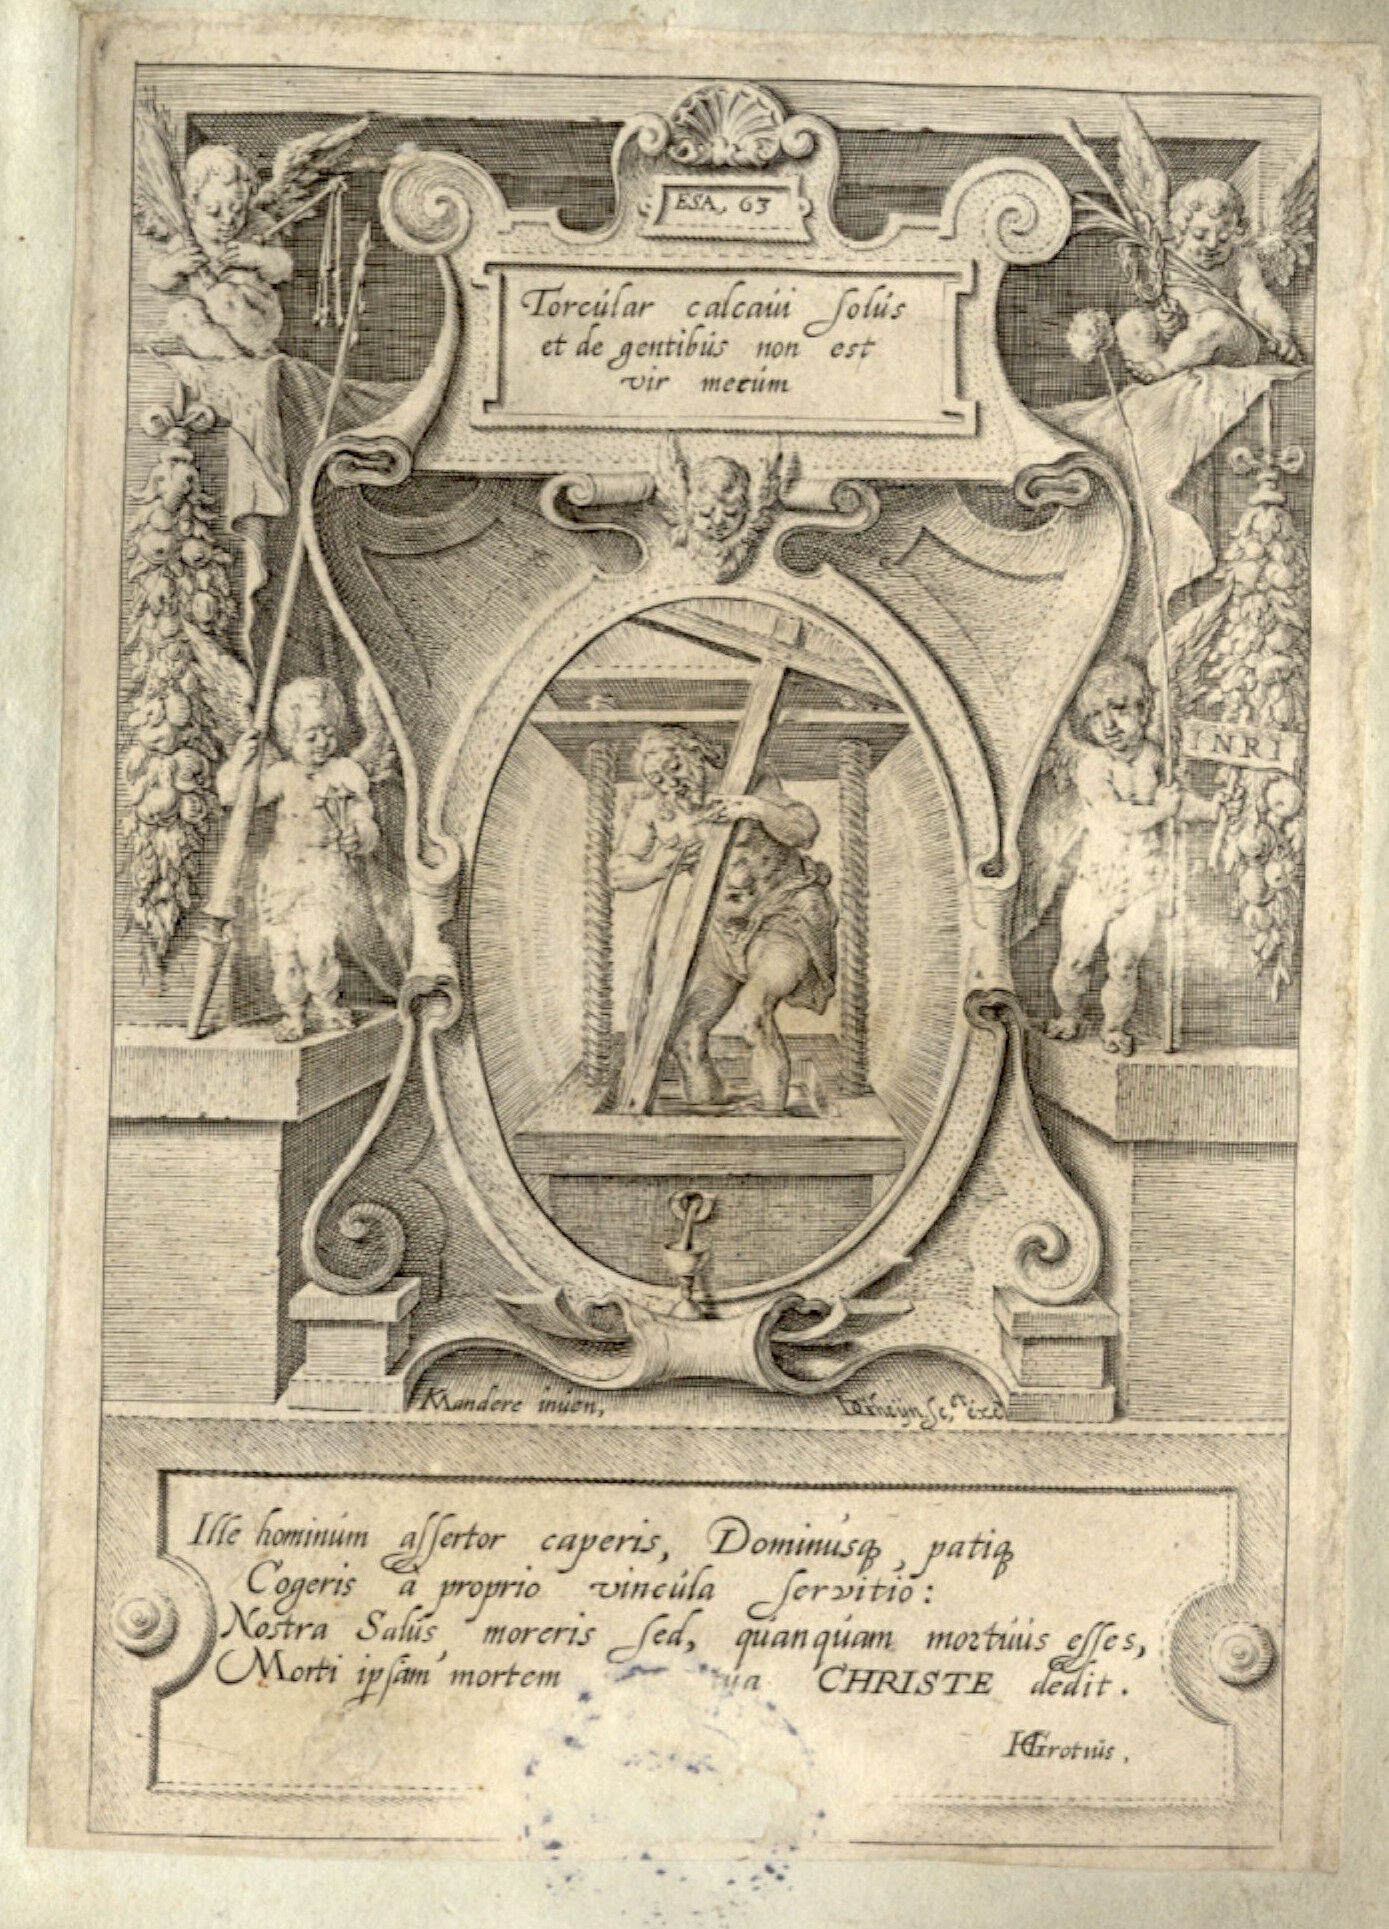 ESA, 63
Torcular calcaui solus
et de gentibus non est
vir mecum
INRI
KMandere inuen,
DGheijn sc. et exc
Ille hominum assertor caperis, Dominusq, patiq
Cogeris à proprio vincula servitio:
Nostra Salus moreris sed, quanquam mortuus esses,
Morti ipsam mortem CHRISTE dedit.
HGrotius.